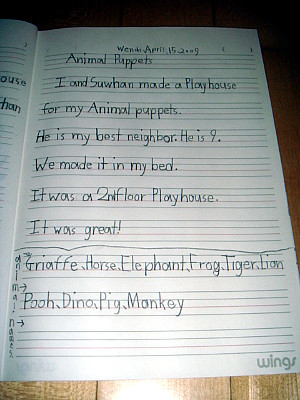 Wends April, 15. 2009
Animal Puppets
I and Suwhan made a Playhouse
for my Animal puppets.
He is my best neighbor. He is 9.
We made it in my bed.
It was a 2nd floor Playhouse.
It was great!
animal names
→ Griaffe, Horse, Elephant, Frog, Tiger, Lion
→ Pooh, Dino, Pig, Monkey
wings
ouse
han